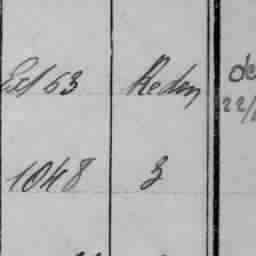 163 Redon de
22/
1048 3